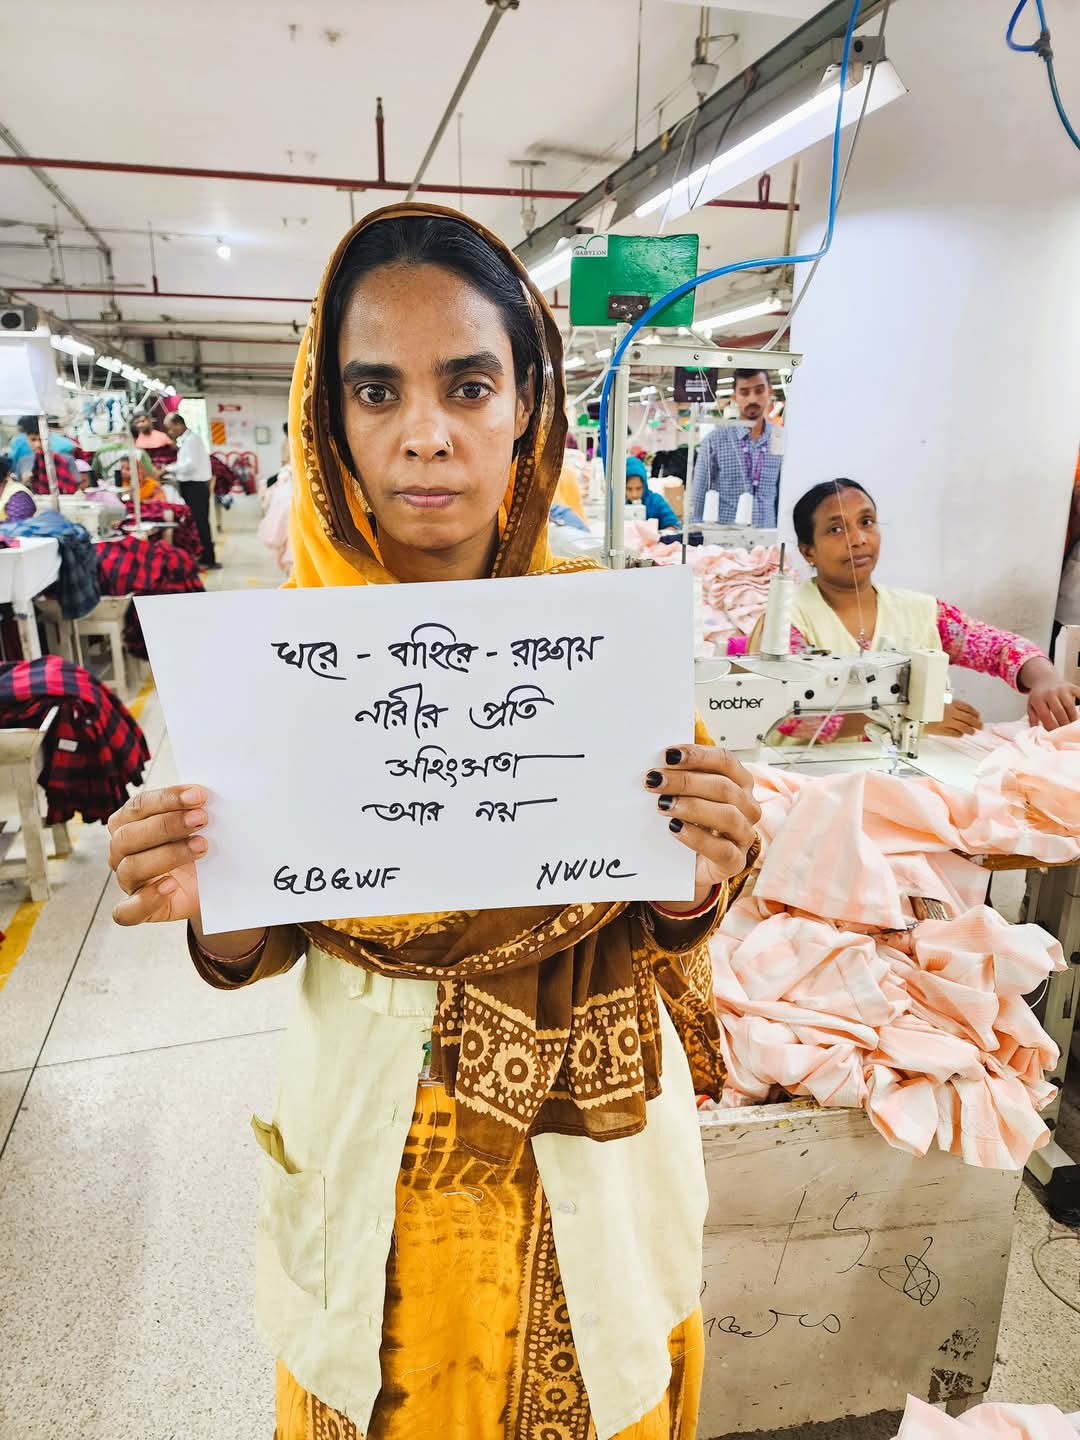 BABYLON
ঘরে - বাহিরে - রাস্তায়
নারীর প্রতি
সহিংসতা
আর নয়
GBGWF NWUC
brother
15